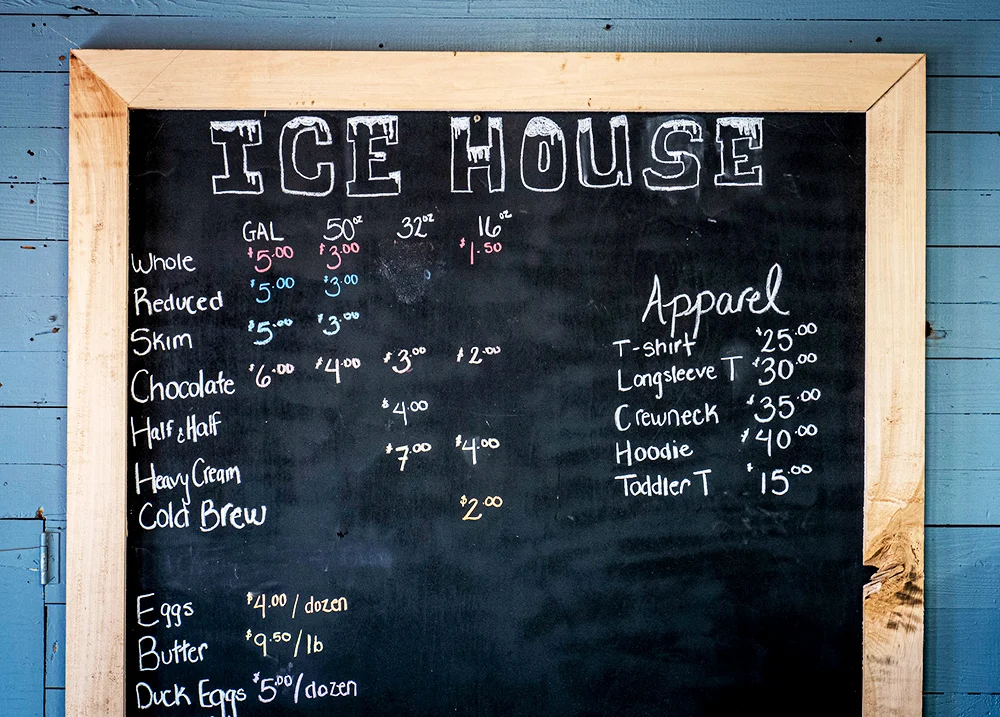 ICE HOUSE
GAL 50oz 32oz 16oz
Whole $5.00 $3.00 $1.50
Reduced $5.00 $3.00
Skim $5.00 $3.00
Chocolate $6.00 $4.00 $3.00 $2.00
Half & Half $4.00
Heavy Cream $7.00 $4.00
Cold Brew $2.00
Eggs $4.00 / dozen
Butter $9.50 / lb
Duck Eggs $5.00 / dozen
Apparel
T-shirt $25.00
Longsleeve T $30.00
Crewneck $35.00
Hoodie $40.00
Toddler T $15.00